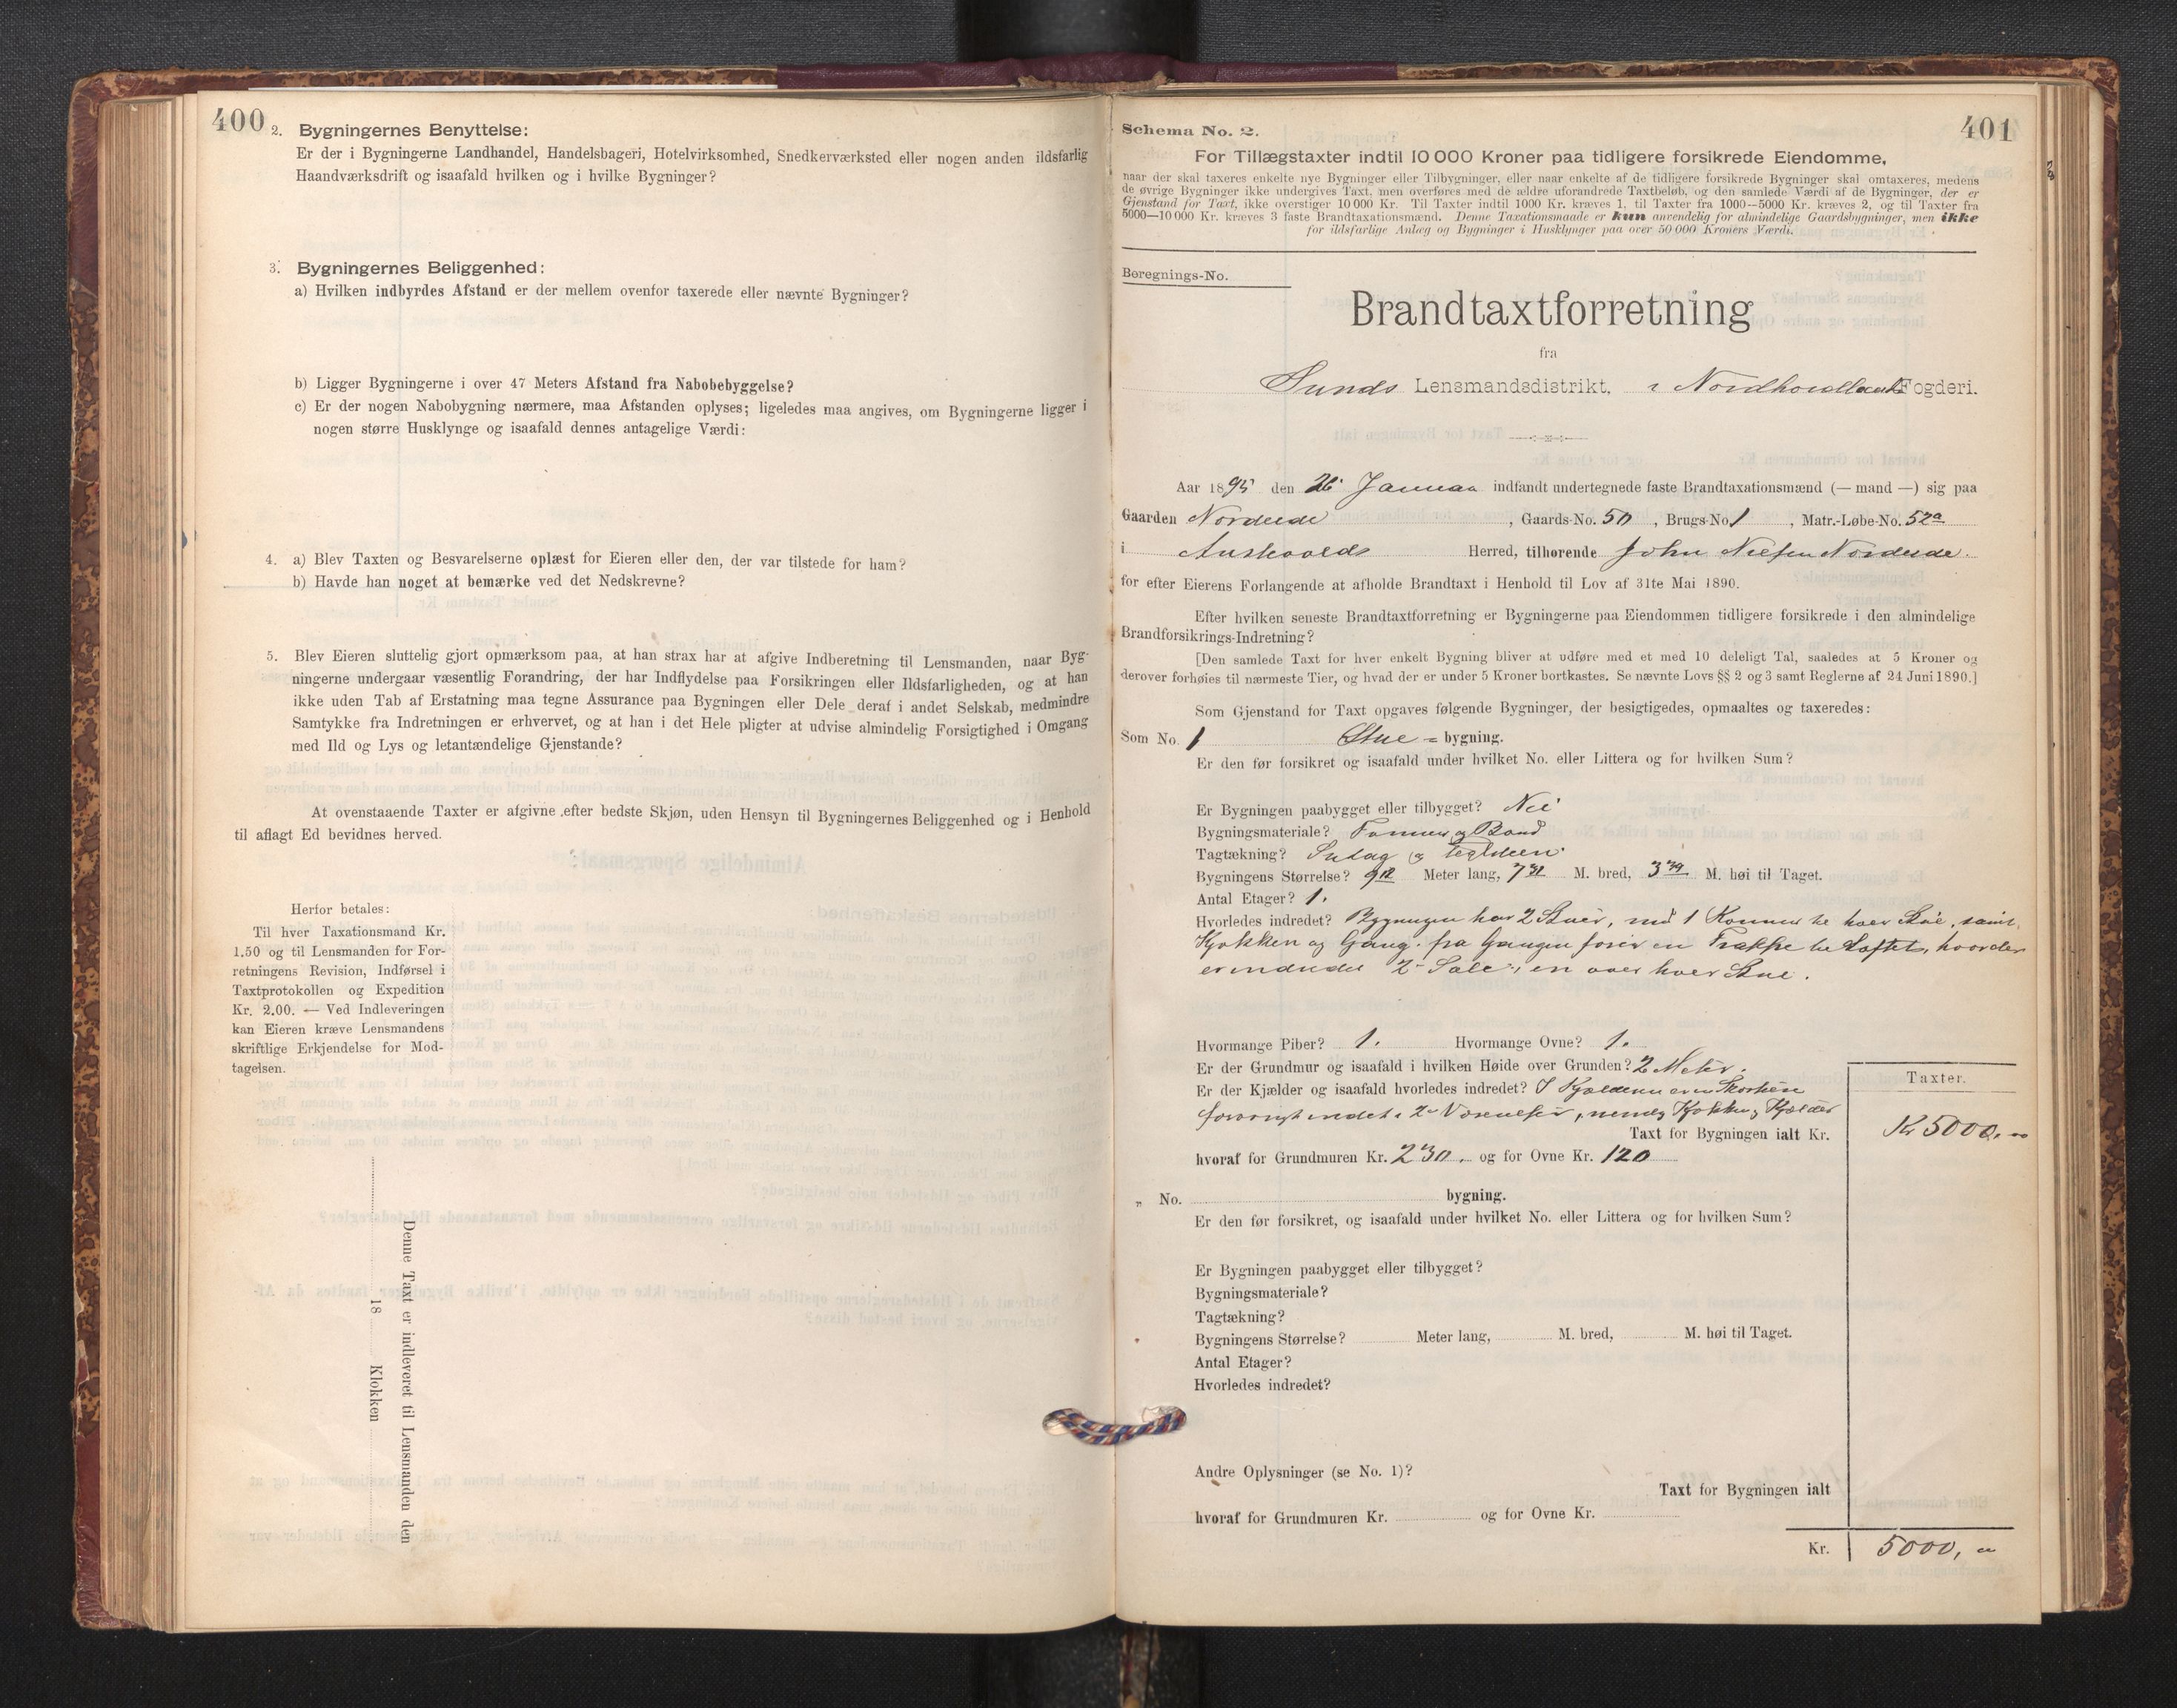 400
2. Bygningernes Benyttelse:
Er der i Bygningerne Landhandel, Handelsbageri, Hotelvirksomhed, Snedkerværksted eller nogen anden ildsfarlig
Haandværksdrift og isaafald hvilken og i hvilke Bygninger?
3. Bygningernes Beliggenhed:
a) Hvilken indbyrdes Afstand er der mellem ovenfor taxerede eller nævnte Bygninger?
b) Ligger Bygningerne i over 47 Meters Afstand fra Nabobebyggelse?
c) Er der nogen Nabobygning nærmere, maa Afstanden oplyses; ligeledes maa angives, om Bygningerne ligger i
nogen større Husklynge og isaafald dennes antagelige Værdi:
4. a) Blev Taxten og Besvarelserne oplæst for Eieren eller den, der var tilstede for ham?
b) Havde han noget at bemærke ved det Nedskrevne?
5. Blev Eieren sluttelig gjort opmærksom paa, at han strax har at afgive Indberetning til Lensmanden, naar Byg-
ningerne undergaar væsentlig Forandring, der har Indflydelse paa Forsikringen eller Ildsfarligheden, og at han
ikke uden Tab af Erstatning maa tegne Assurance paa Bygningen eller Dele deraf i andet Selskab, medmindre
Samtykke fra Indretningen er erhvervet, og at han i det Hele pligter at udvise almindelig Forsigtighed i Omgang
med Ild og Lys og letantændelige Gjenstande?
At ovenstaaende Taxter er afgivne efter bedste Skjøn, uden Hensyn til Bygningernes Beliggenhed og i Henhold
til aflagt Ed bevidnes herved.
Herfor betales:
Til hver Taxationsmand Kr.
1.50 og til Lensmanden for For-
retningens Revision, Indførsel i
Taxtprotokollen og Expedition
Kr. 2.00. — Ved Indleveringen
kan Eieren kræve Lensmandens
skriftlige Erkjendelse for Mod-
tagelsen.
Denne Taxt er indleveret til Lensmanden den
18 Klokken
401
Schema No. 2.
For Tillægstaxter indtil 10 000 Kroner paa tidligere forsikrede Eiendomme,
naar der skal taxeres enkelte nye Bygninger eller Tilbygninger, eller naar enkelte af de tidligere forsikrede Bygninger skal omtaxeres, medens
de øvrige Bygninger ikke undergives Taxt, men overføres med de ældre uforandrede Taxtbeløb, og den samlede Værdi af de Bygninger, der er
Gjenstand for Taxt, ikke overstiger 10 000 Kr. Til Taxter indtil 1000 Kr. kræves 1, til Taxter fra 1000—5000 Kr. kræves 2, og til Taxter fra
5000—10 000 Kr. kræves 3 faste Brandtaxationsmænd. Denne Taxationsmaade er kun anvendelig for almindelige Gaardsbygninger, men ikke
for ildsfarlige Anlæg og Bygninger i Husklynger paa over 50 000 Kroners Værdi.
Beregnings-No.
Brandtaxtforretning
fra
Sunds Lensmandsdistrikt, i Nordhordland Fogderi.
Aar 1895 den 26 Januar indfandt undertegnede faste Brandtaxationsmænd (— mand —) sig paa
Gaarden Nordeide, Gaards-No. 50, Brugs-No. 1, Matr.-Løbe-No. 52a
i Austevolds Herred, tilhørende John Nielsen Nordeide.
for efter Eierens Forlangende at afholde Brandtaxt i Henhold til Lov af 31te Mai 1890.
Efter hvilken seneste Brandtaxtforretning er Bygningerne paa Eiendommen tidligere forsikrede i den almindelige
Brandforsikrings-Indretning?
[Den samlede Taxt for hver enkelt Bygning bliver at udføre med et med 10 deleligt Tal, saaledes at 5 Kroner og
derover forhøies til nærmeste Tier, og hvad der er under 5 Kroner bortkastes. Se nævnte Lovs §§ 2 og 3 samt Reglerne af 24 Juni 1890.]
Som Gjenstand for Taxt opgaves følgende Bygninger, der besigtigedes, opmaaltes og taxeredes:
Som No. 1 Stue = bygning.
Er den før forsikret og isaafald under hvilket No. eller Littera og for hvilken Sum?
Er Bygningen paabygget eller tilbygget? Nei
Bygningsmateriale? Tømmer og Bord
Tagtækning? og teglsteen.
Bygningens Størrelse? 9 Meter lang, 7 M. bred, 3 M. høi til Taget.
Antal Etager? 1.
Hvorledes indredet? Bygningen har 2 Stuer, med 1 Kammer til hver Stue, samt
Kjøkken og Gang. fra Gangen fører en Trappe til Loftet, hvor der
er indredet 2 Sale, en over hver Stue.
Hvormange Piber? 1. Hvormange Ovne? 1.
Er der Grundmur og isaafald i hvilken Høide over Grunden? 2 Meter.
Er der Kjælder og isaafald hvorledes indredet? I Kjælderen er en Skorsten
forøvrigt indredet 2 Værelser, nemlig Kjøkken og Kjælder
Taxter.
Taxt for Bygningen ialt Kr. Kr 5000,
hvoraf for Grundmuren Kr. 230. og for Ovne Kr. 120
„ No. bygning.
Er den før forsikret, og isaafald under hvilket No. eller Littera og for hvilken Sum?
Er Bygningen paabygget eller tilbygget?
Bygningsmateriale?
Tagtækning?
Bygningens Størrelse? Meter lang, M. bred, M. høi til Taget.
Antal Etager?
Hvorledes indredet?
Andre Oplysninger (se No. 1)?
Taxt for Bygningen ialt
hvoraf for Grundmuren Kr. og for Ovne Kr.
Kr. 5000,